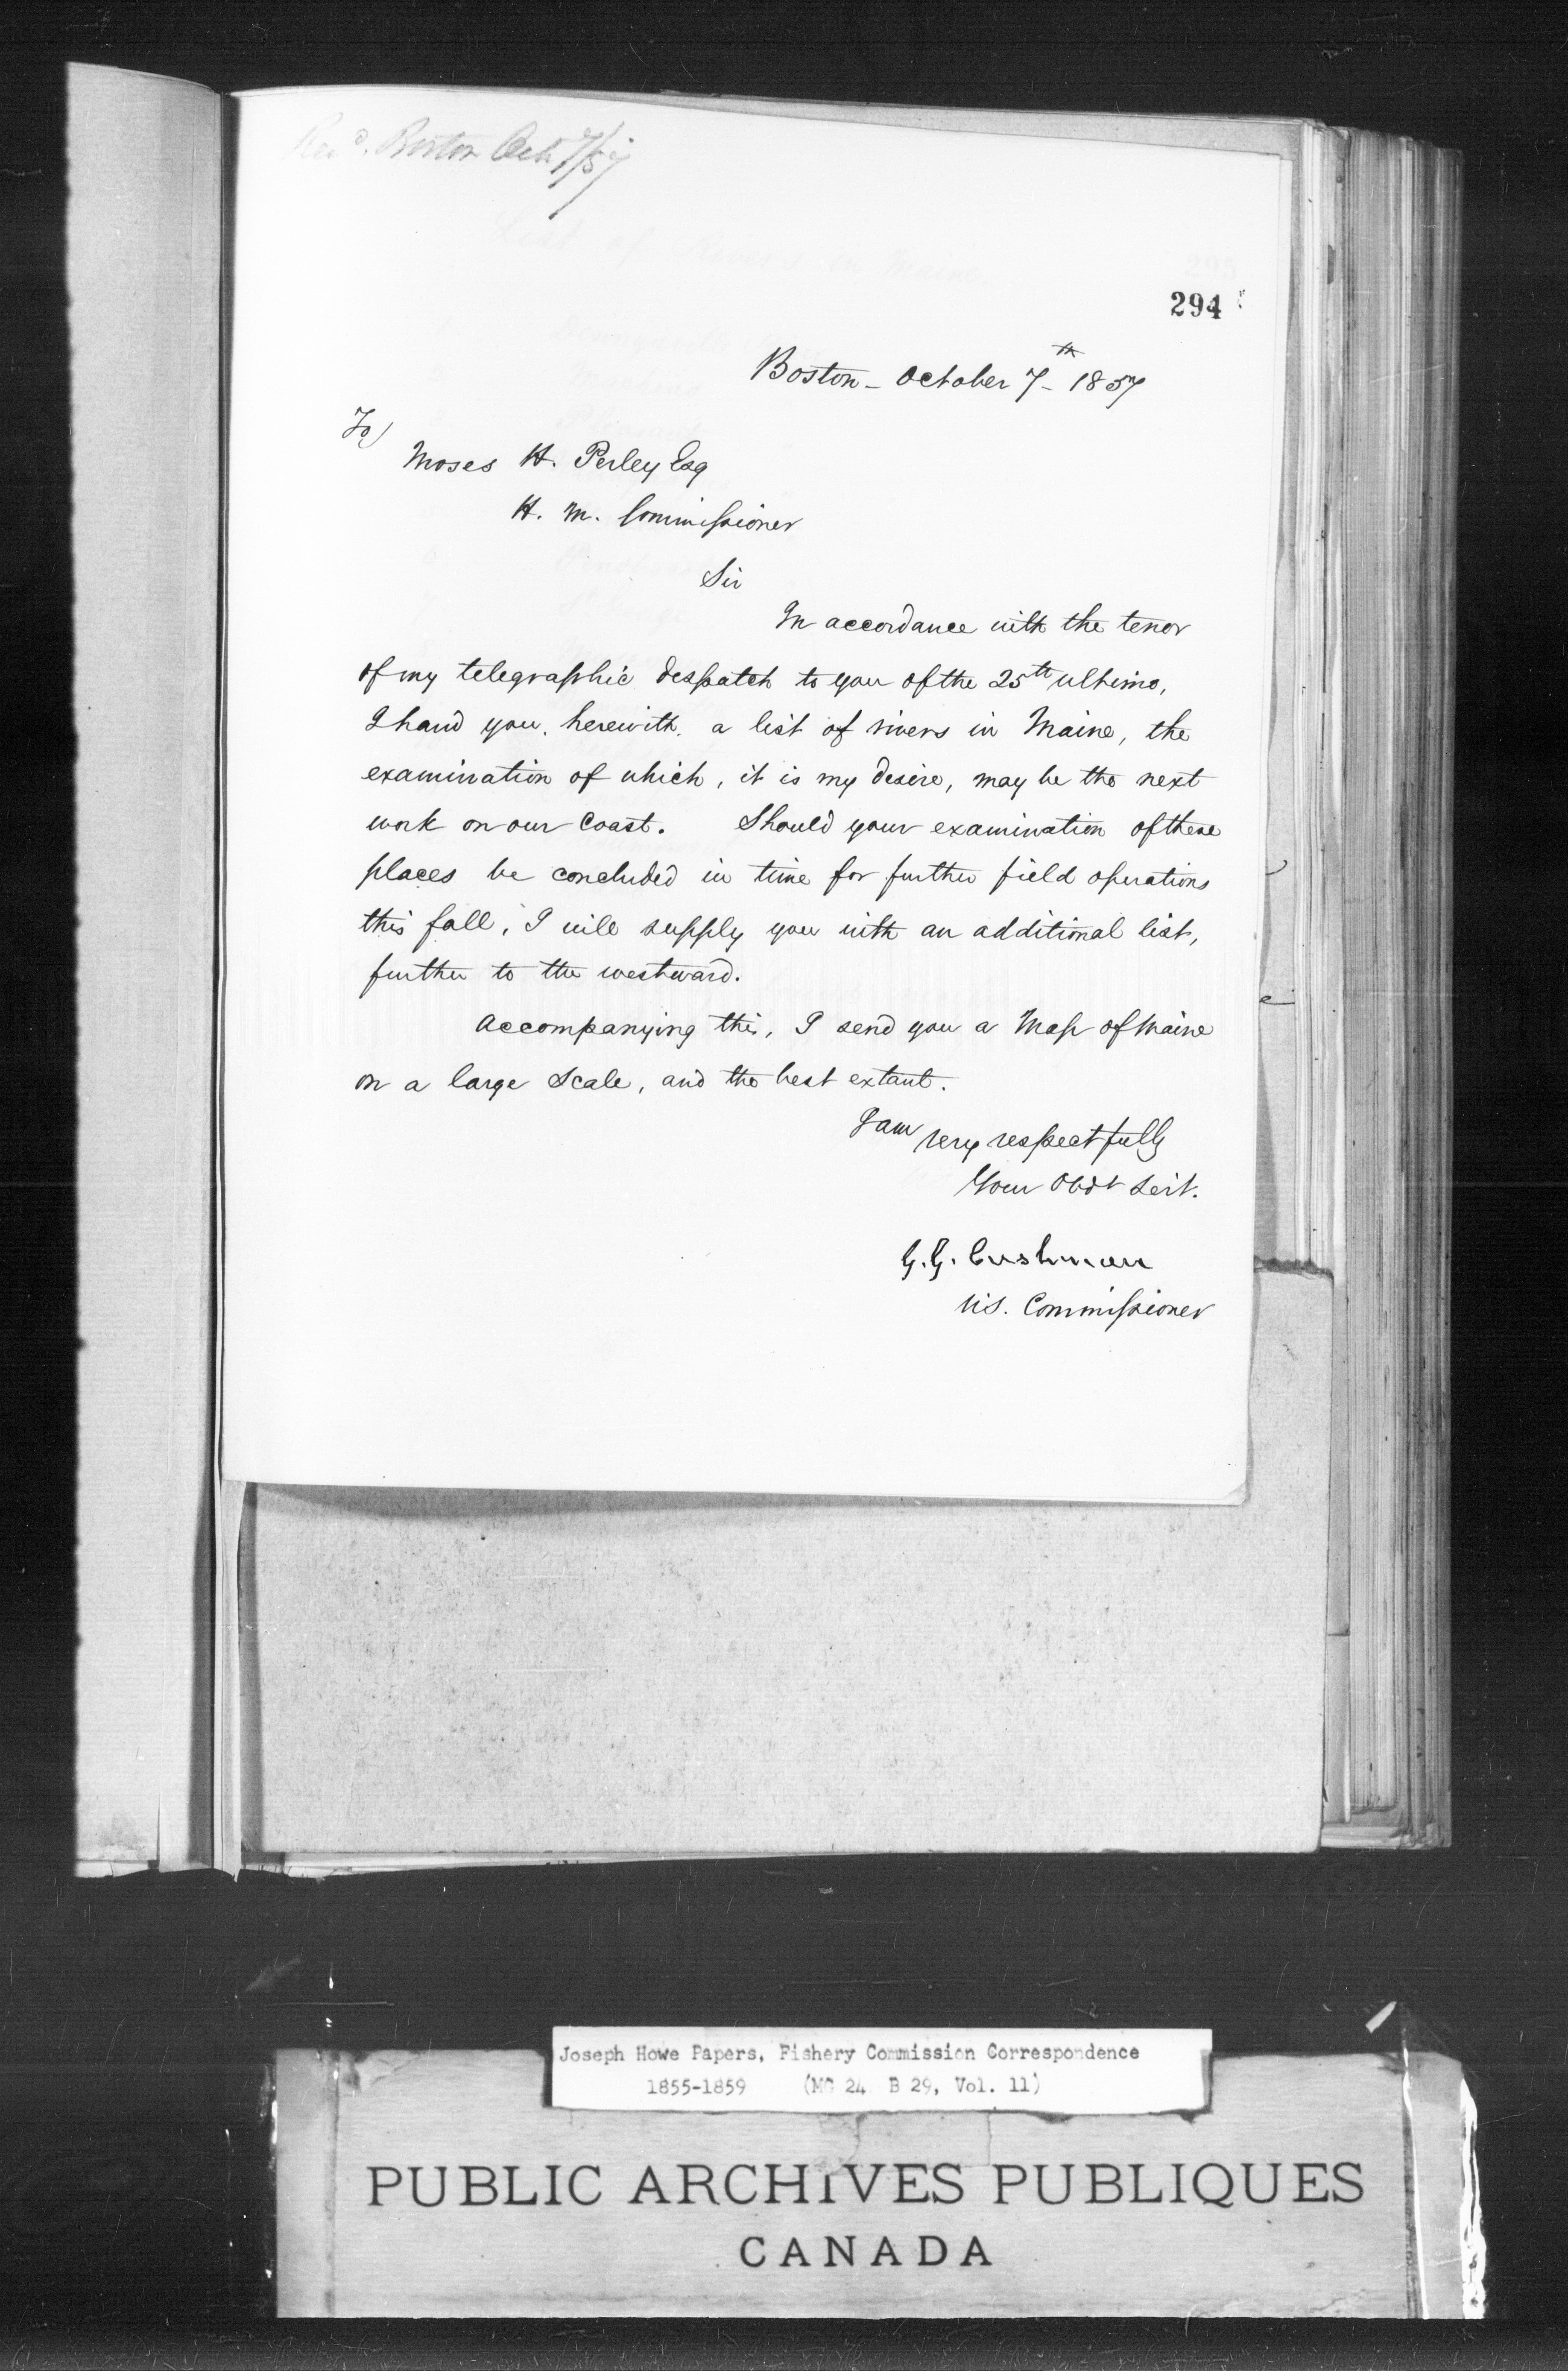 Recd. Boston Oct 7/57
294
Boston - October 7th - 1857
To
Moses H. Perley Esq
H. M. Commissioner
Sir
In accordance with the tenor
of my telegraphic despatch to you of the 25th ultimo,
I hand you, herewith, a list of rivers in Maine, the
examination of which, it is my desire, may be the next
work on our Coast. Should your examination of these
places be concluded in time for further field operations
this fall, I will supply you with an additional list,
further to the westward.
Accompanying this, I send you a Map of Maine
on a large Scale, and the best extant.
I am very respectfully
Your Obdt Servt.
G. G. Cushman
U.S. Commissioner
Joseph Howe Papers, Fishery Commission Correspondence
1855-1859 (MG 24 B 29, Vol. 11)
PUBLIC ARCHIVES PUBLIQUES
CANADA